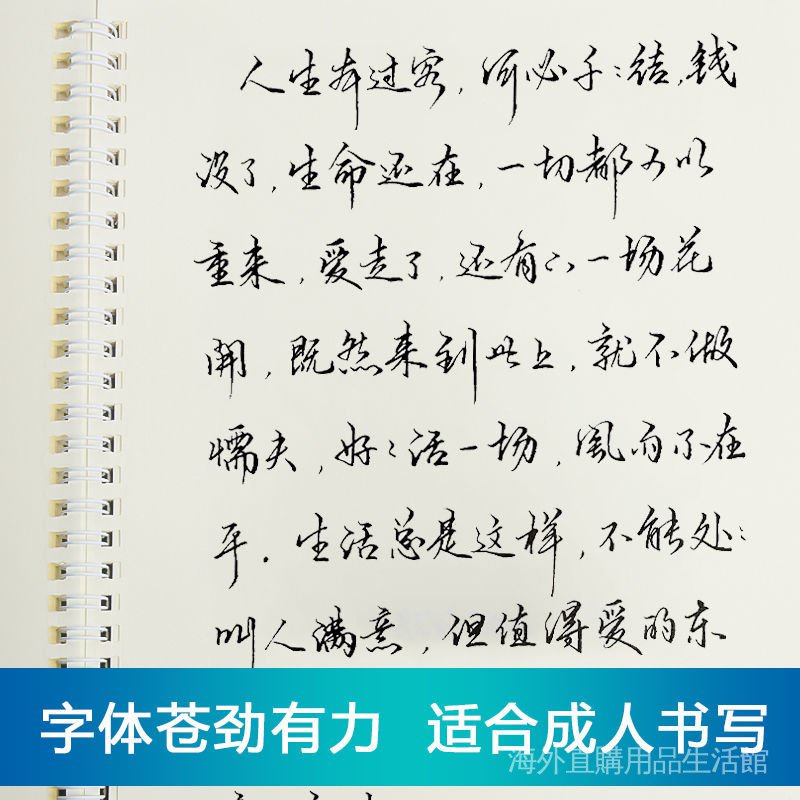 人生本过客，何必千：结，钱
没了，生命还在，一切都可以
重来，爱走了，还有下一场花
開，既然来到世上，就不做
懦夫，好：活一场，風雨不在
乎。生活总是这样，不能处：
叫人满意，但值得爱的东
字体苍劲有力 适合成人书写
海外直購用品生活館